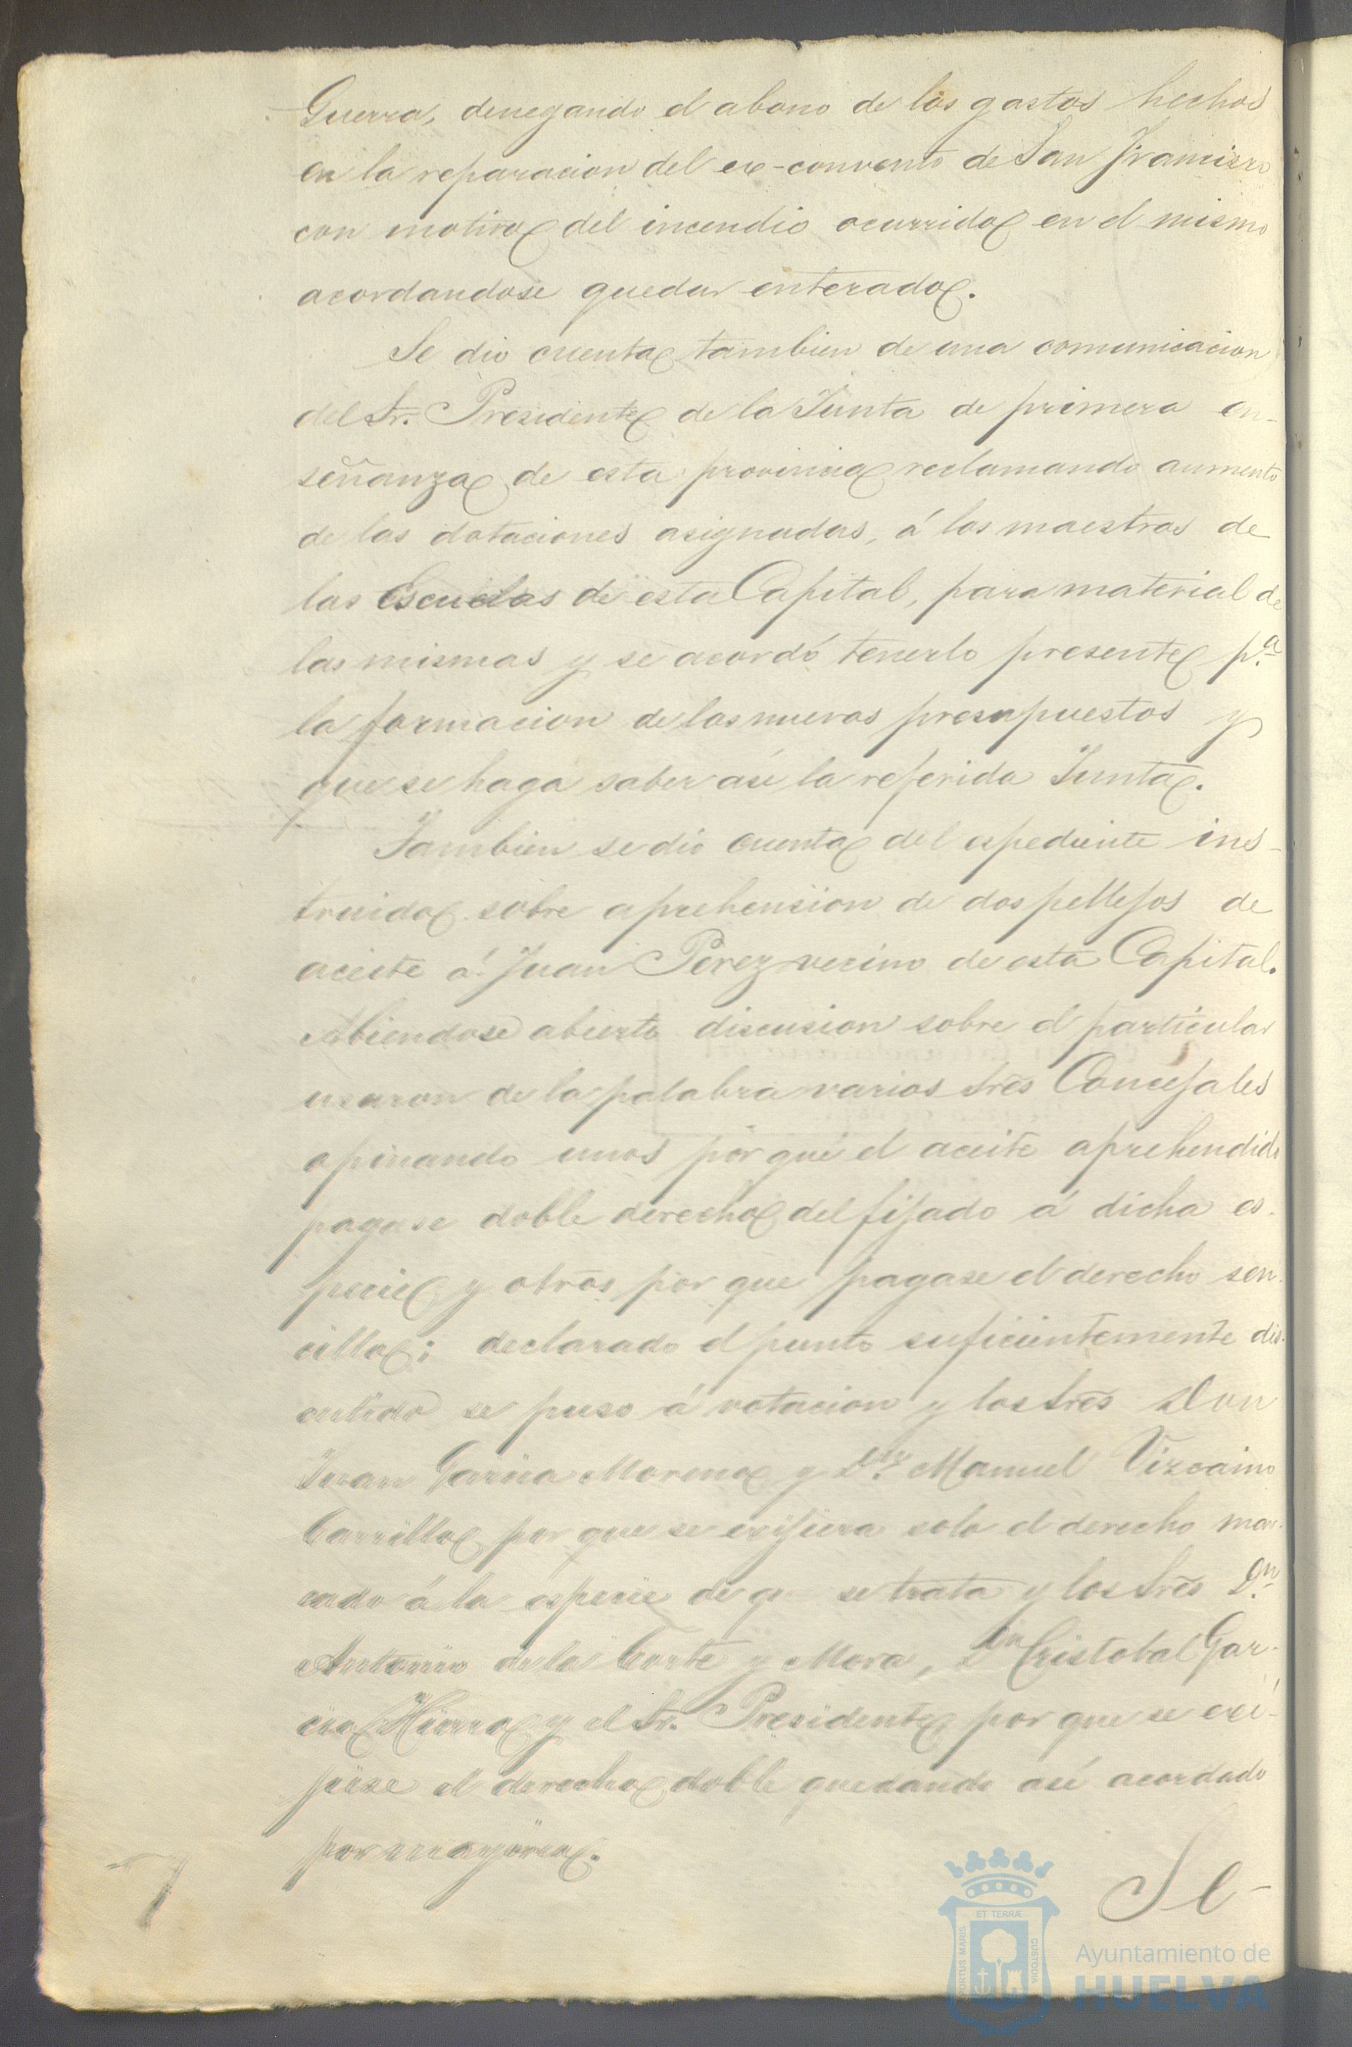 Guerra, denegando el abono de los gastos hechos
en la reparacion del ex-convento de San Francisco
con motivo del incendio ocurrido en el mismo
acordandose quedar enterado.
Se dió cuenta tambien de una comunicacion
del Sr. Presidente de la Junta de primera en-
señanza de esta provincia reclamando aumento
de las dotaciones asignadas, á los maestros de
las Escuelas de esta Capital, para material de
las mismas y se acordó tenerlo presente p.ª
la formacion de los nuevos presupuestos y
que se haga saber asi la referida Junta.
Tambien se dió cuenta del espediente ins-
truido sobre aprehension de dos pellejos de
aceite á Juan Perez vecino de esta Capital.
Abiendose abierto discusion sobre el particular
usaron de la palabra varios Sres Concejales
opinando unos por que el aceite aprehendido
pagase doble derecho del fijado á dicha es-
pecie y otros por que pagase el derecho sen-
cillo; declarado el punto suficientemente dis-
cutido se puso á votacion y los Sres Don
Juan Garcia Moreno y D.n Manuel Vizcaino
Carrillo por que se exijiera solo el derecho mar-
cado á la especie de q. se trata y los Sres D.n
Antonio de la Corte y Mora, D.n Cristobal Gar-
cia Hierro y el Sr. Presidente por que se exi-
jiese el derecho doble quedando así acordado
por mayoria.
Se-
PORTUS MARIS ET TERRÆ CUSTODIA
Ayuntamiento de
HUELVA